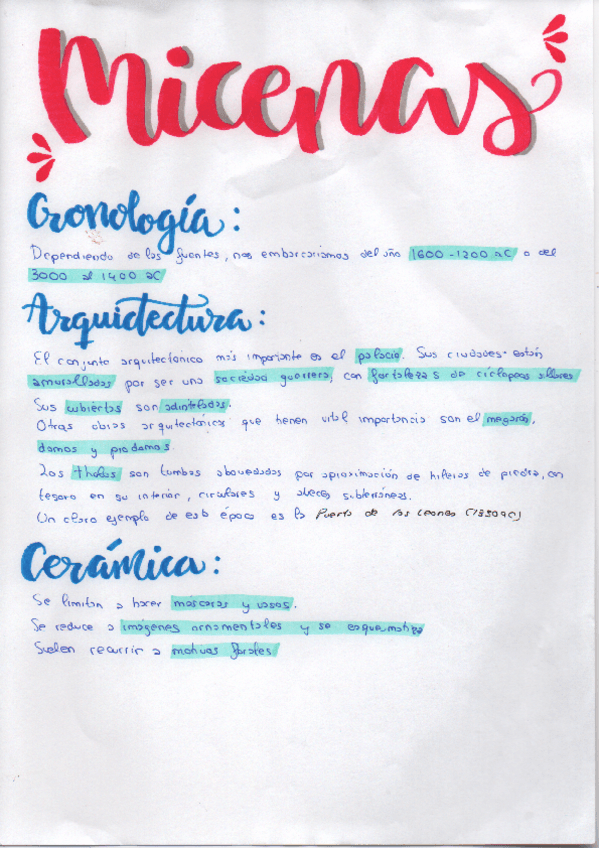 Micenas
Cronología:
Dependiendo de las fuentes, nos embarcaríamos del año 1600-1200 aC o del
3000 al 1400 aC
Arquictectura:
El conjunto arquitectónico más importante es el palacio. Sus ciudades están
amuralladas por ser una sociedad guerrera, con fortalezas de ciclopeos
Sus cubiertas son adinteladas.
Otras obras arquitectónicas que tienen vital importancia son el megarón,
domos y prodomos.
Los tholos son tumbas abovedadas por aproximación de hileras de piedra, con
tesoro en su interior, circulares y a veces subterráneas.
Un claro ejemplo de esta época es la Puerta de los Leones (1350aC)
Cerámica:
Se limitan a hacer máscaras y vasos.
Se reduce a imágenes ornamentales y se esquematiza
Suelen recurrir a motivos florales